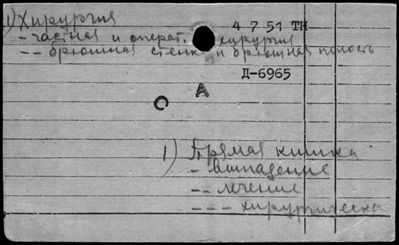 1) Хирургия
4 7 51 ТН
- частная и операт. хирургия
-- брюшная стенка и брюшная полость
Д-6965
С А
1) Прямая кишка
- выпадение
-- лечение
--- хирургическа